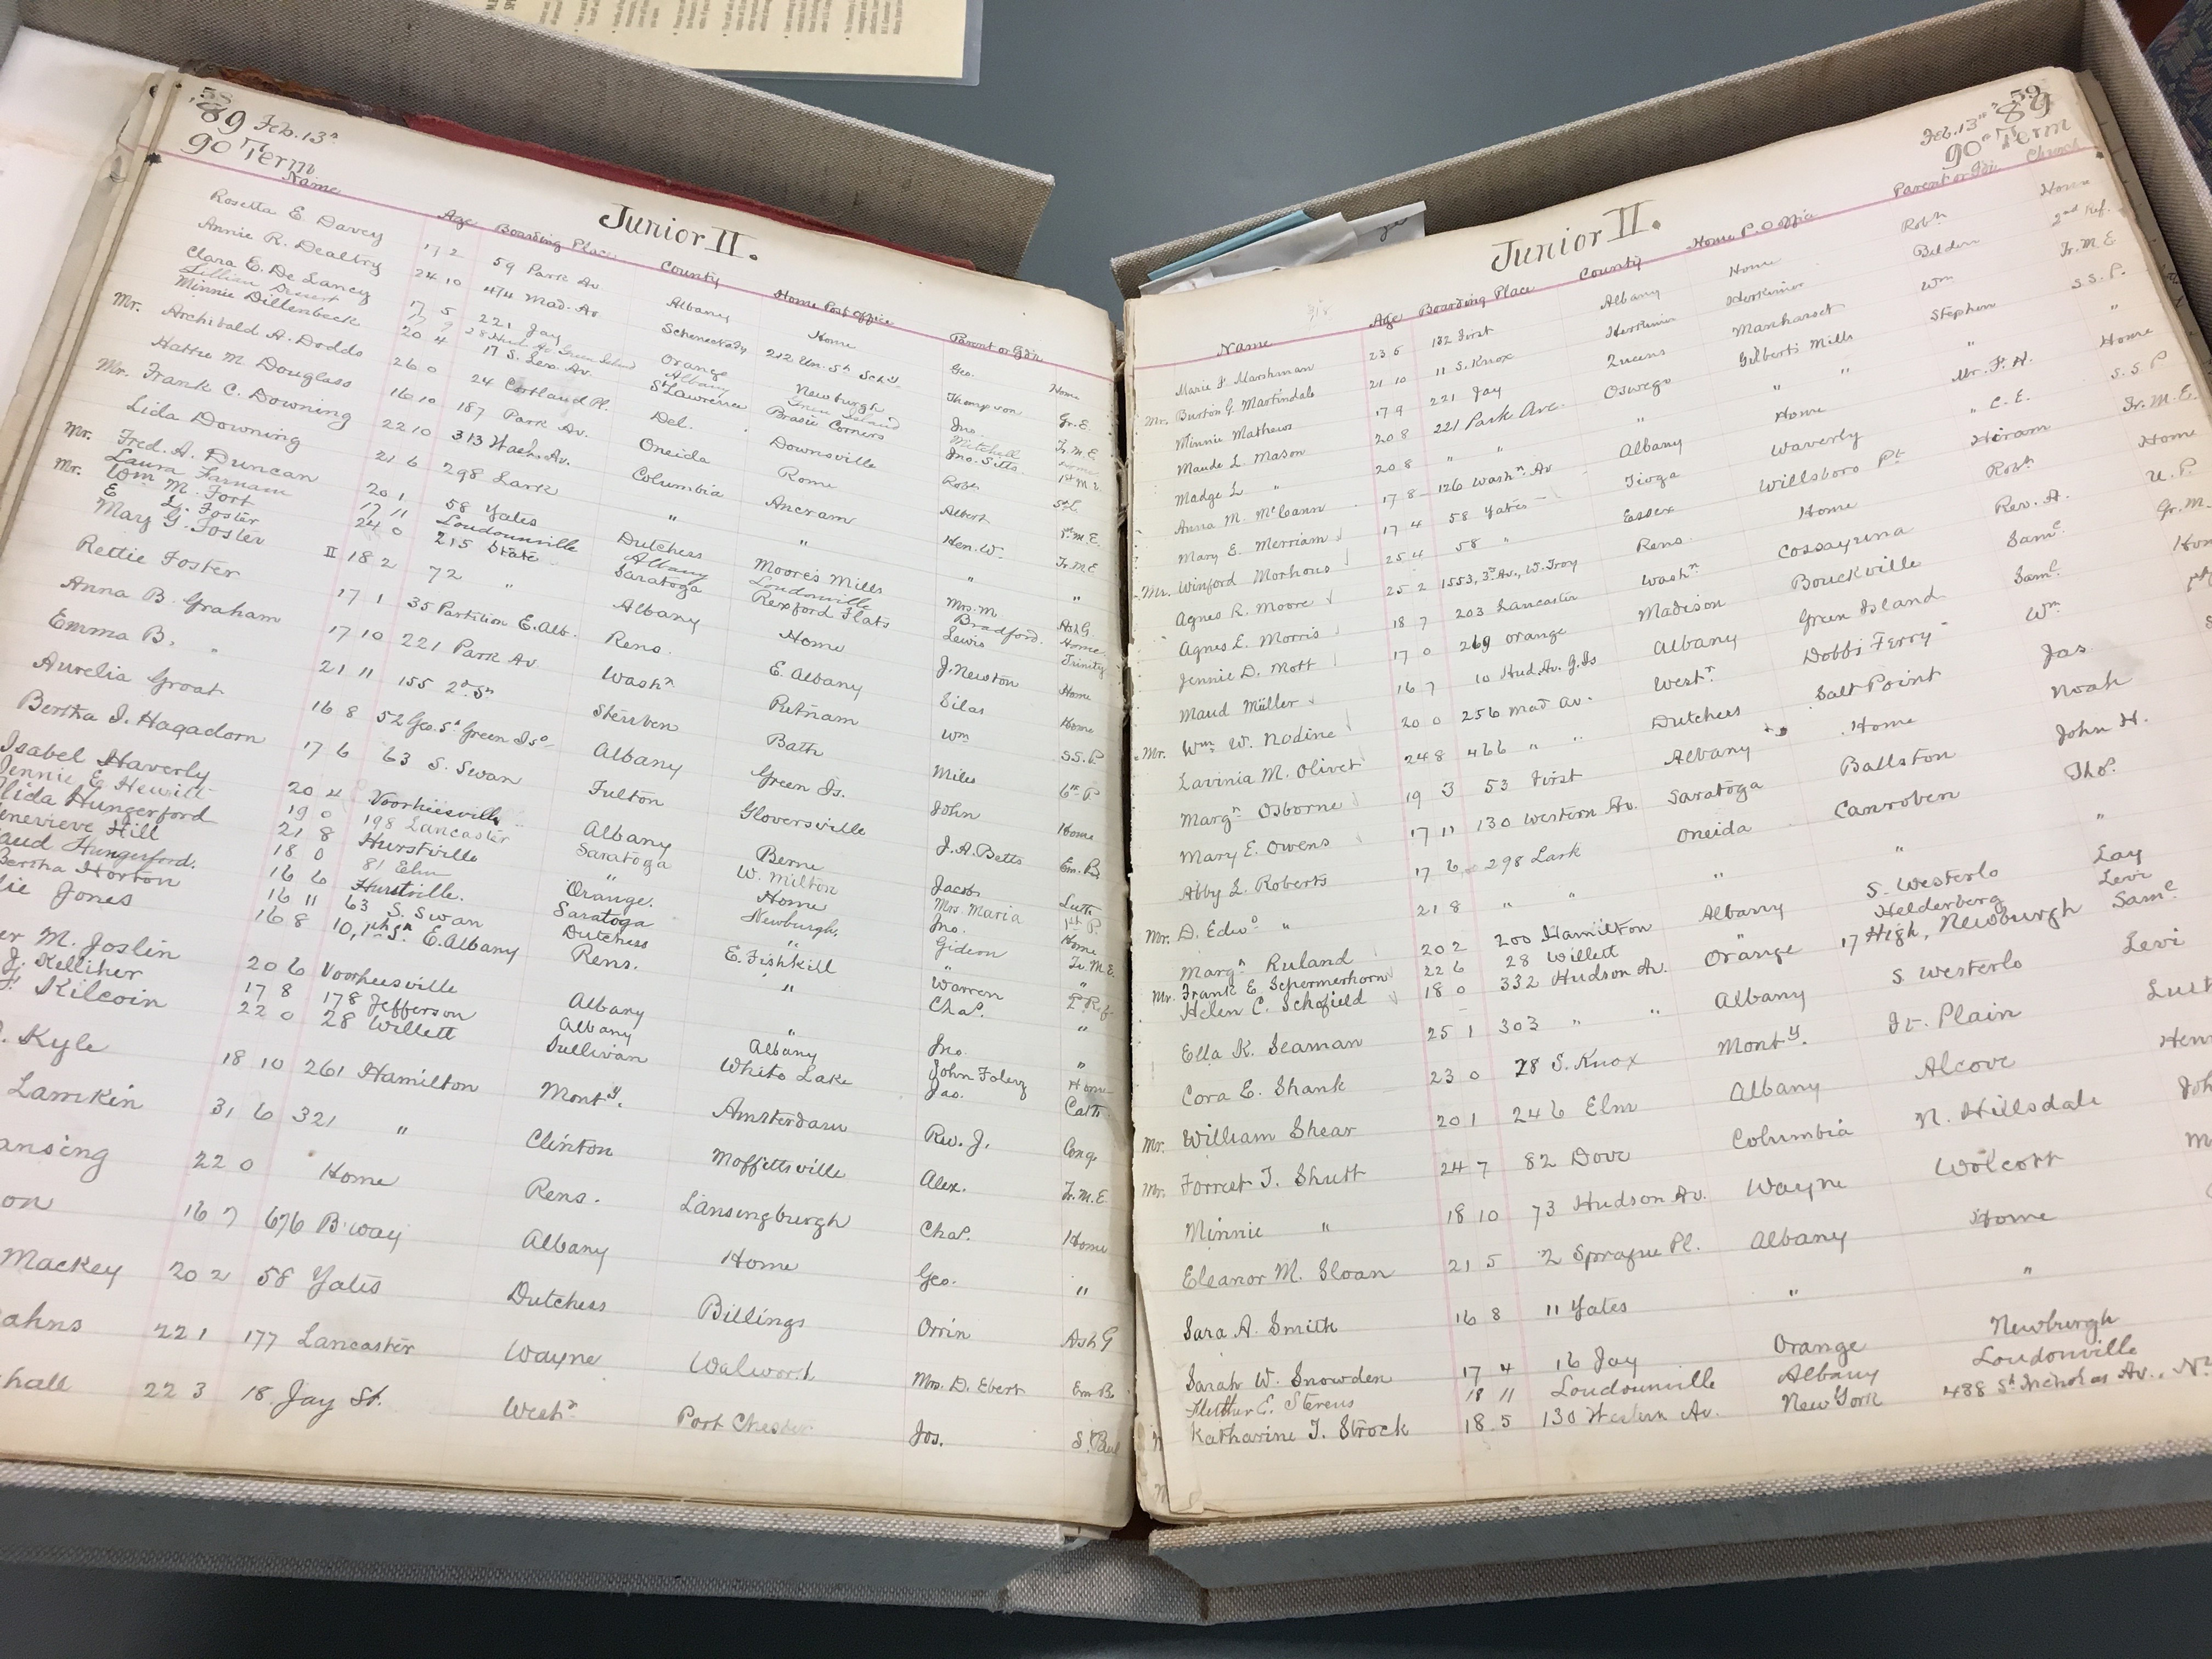 58
89 Feb. 13th
90 Term
Junior II.
Name Age Boarding Place County Home Post Office Parent or Gd'n
Rosetta E. Davey 17 2 59 Park Av Albany Home Geo. Home
Annie R. Dealtry 24 10 474 Mad. Av Schenectady 212 Un. St Sch'y Thompson Gr. E.
Clara E. De Lancy 17 5 221 Jay Orange Newburgh Jno. Tr. M. E.
Lillian 17 9 28 Hud. Av Green Island Albany Green Island Mitchell Home
Minnie Dillenbeck 20 4 17 S. Lex. Av. St Lawrence Brasie Corners Jno. Sitts 1st M. E.
Mr. Archibald A. Dodds 26 0 24 Cortland Pl. Del. Downsville Robt
Hattie M. Douglass 16 10 187 Park Av. Oneida Rome Albert
Mr. Frank C. Downing 22 10 313 Wash. Av. Columbia Ancram Hen. W. 1st M. E.
Lida Downing 21 6 298 Lark " " " Tr. M. E
Mr. Fred. A. Duncan 20 1 58 Yates Dutchess Moores Mills Mrs. M "
Laura Farnam 17 11 Loudonville Albany Loudonville Bradford. Ash G.
Mr. Wm M. Fort 24 0 215 State Saratoga Rexford Flats Lewis Home
E. L. Foster Trinity
Mary G. Foster II 18 2 72 " Albany Home J. Newton Home
Rettie Foster 17 1 35 Partition E. Alb. Rens. E. Albany Silas Home
Anna B. Graham 17 10 221 Park Av Washn Putnam Wm S. S. P.
Emma B. " 21 11 155 2d St Steuben Bath Miles 6th P.
Aurelia Groat 16 8 52 Geo. St Green Isd Albany Green Is. John Home
Bertha I. Hagadorn 17 6 63 S. Swan Fulton Gloversville J. A. Betts Em. B
Isabel Haverly 20 4 Voorheesville Albany Berne Jacob Luth
Jennie E. Hewitt 19 0 198 Lancaster Saratoga W. Milton Mrs. Maria 1st P.
lida Hungerford 21 8 Hurstville " Home Jno. Home
enevieve Hill 18 0 81 Elm Orange. Newburgh. Gideon Tr. M. E.
aud Hungerford. 16 6 Hurstville. Saratoga " " "
Bertha Horton 16 11 63 S. Swan Dutchess E. Fishkill Warren
ie Jones 16 8 10, 1st St. E. Albany Rens. " Chas. "
er M. Joslin 20 6 Voorheesville Albany " Jno. "
J. Kelliher 17 8 178 Jefferson Albany Albany John Foley Home
F. Kilcoin 22 0 28 Willett Sullivan White Lake Jas. Cath.
. Kyle 18 10 261 Hamilton Monty. Amsterdam Rev. J. Cong
Lamkin 31 6 321 " Clinton Moffittsville Alex. Tr. M. E
ansing 22 0 Home Rens. Lansingburgh Chas. Home
on 16 7 676 B'way Albany Home Geo. "
Mackey 20 2 58 Yates Dutchess Billings Orrin Ash G
ahns 22 1 177 Lancaster Wayne Walworth Mrs. D. Ebert Em B.
hall 22 3 18 Jay St. Westr Port Chester Jos. St Paul
59
Feb. 13th 89
90th Term
Junior II.
Name Age Boarding Place County Home P. O Parent or Gd'n Church
Marie F. Marshman 23 5 132 First Albany Home Robt Home
Mr. Burton G. Martindale 21 10 11 S. Knox Herkimer Herkimer Belden 2nd Ref.
Minnie Mathews 17 9 221 Jay Queens Manhasset Wm Tr. M. E
Maude L. Mason 20 8 221 Park Ave. Oswego Gilberts Mills Stephen S. S. P.
Madge L " 20 8 " " " " " " "
Anna M. McCann 17 8 126 Washn Av Albany Home Mr. F. H. Home
Mary E. Merriam 17 4 58 Yates Tioga Waverly " C. E. S. S P
Mr. Winford Morhous 25 4 58 " Essex Willsboro Pt Hiram Tr. M. E.
Agnes R. Moore 25 2 1553, 3d Av., W. Troy Rens. Home Robt Home
Agnes E. Morris 18 7 203 Lancaster Washn Cossayuna Rev. A. U. P.
Jennie D. Mott 17 0 269 Orange Madison Bouckville Saml Gr. M.
Maud Müller 16 7 10 Hud. Av. G. Is Albany Green Island Saml
Mr. Wm W. Nodine 20 0 256 Mad Av. Westr Dobbs Ferry Wm
Lavinia M. Olivet 24 8 466 " " Dutchess Salt Point Jas
Margt Osborne 19 3 53 First Albany Home Noah
Mary E. Owens 17 11 130 Western Av. Saratoga Ballston John H.
Abby L. Roberts 17 6 298 Lark Oneida Canroben Thos.
Mr. D. Edwd " 21 8 " " " " "
Margt Ruland 20 2 200 Hamilton Albany S. Westerlo Lay
Mr. Frank E. Schermerhorn 22 6 28 Willett " Helderberg Levi
Helen C. Schofield 18 0 332 Hudson Av. Orange 17 High, Newburgh Saml
Ella K. Seaman 25 1 303 " " Albany S Westerlo Levi
Cora E. Shank 23 0 28 S. Knox Monty. Ft. Plain
Mr. William Shear 20 1 246 Elm Albany Alcove
Mr. Forrest T. Shutt 24 7 82 Dove Columbia N. Hillsdale
Minnie " 18 10 73 Hudson Av. Wayne Wolcott
Eleanor M. Sloan 21 5 2 Sprague Pl. Albany Home
Sara A. Smith 16 8 11 Yates " "
Sarah W. Snowden 17 4 16 Jay Orange Newburgh
E. Stevens 18 11 Loudounville Albany Loudonville
Katharine T. Strock 18 5 130 Western Av. New York 488 St Nicholas Av., N.